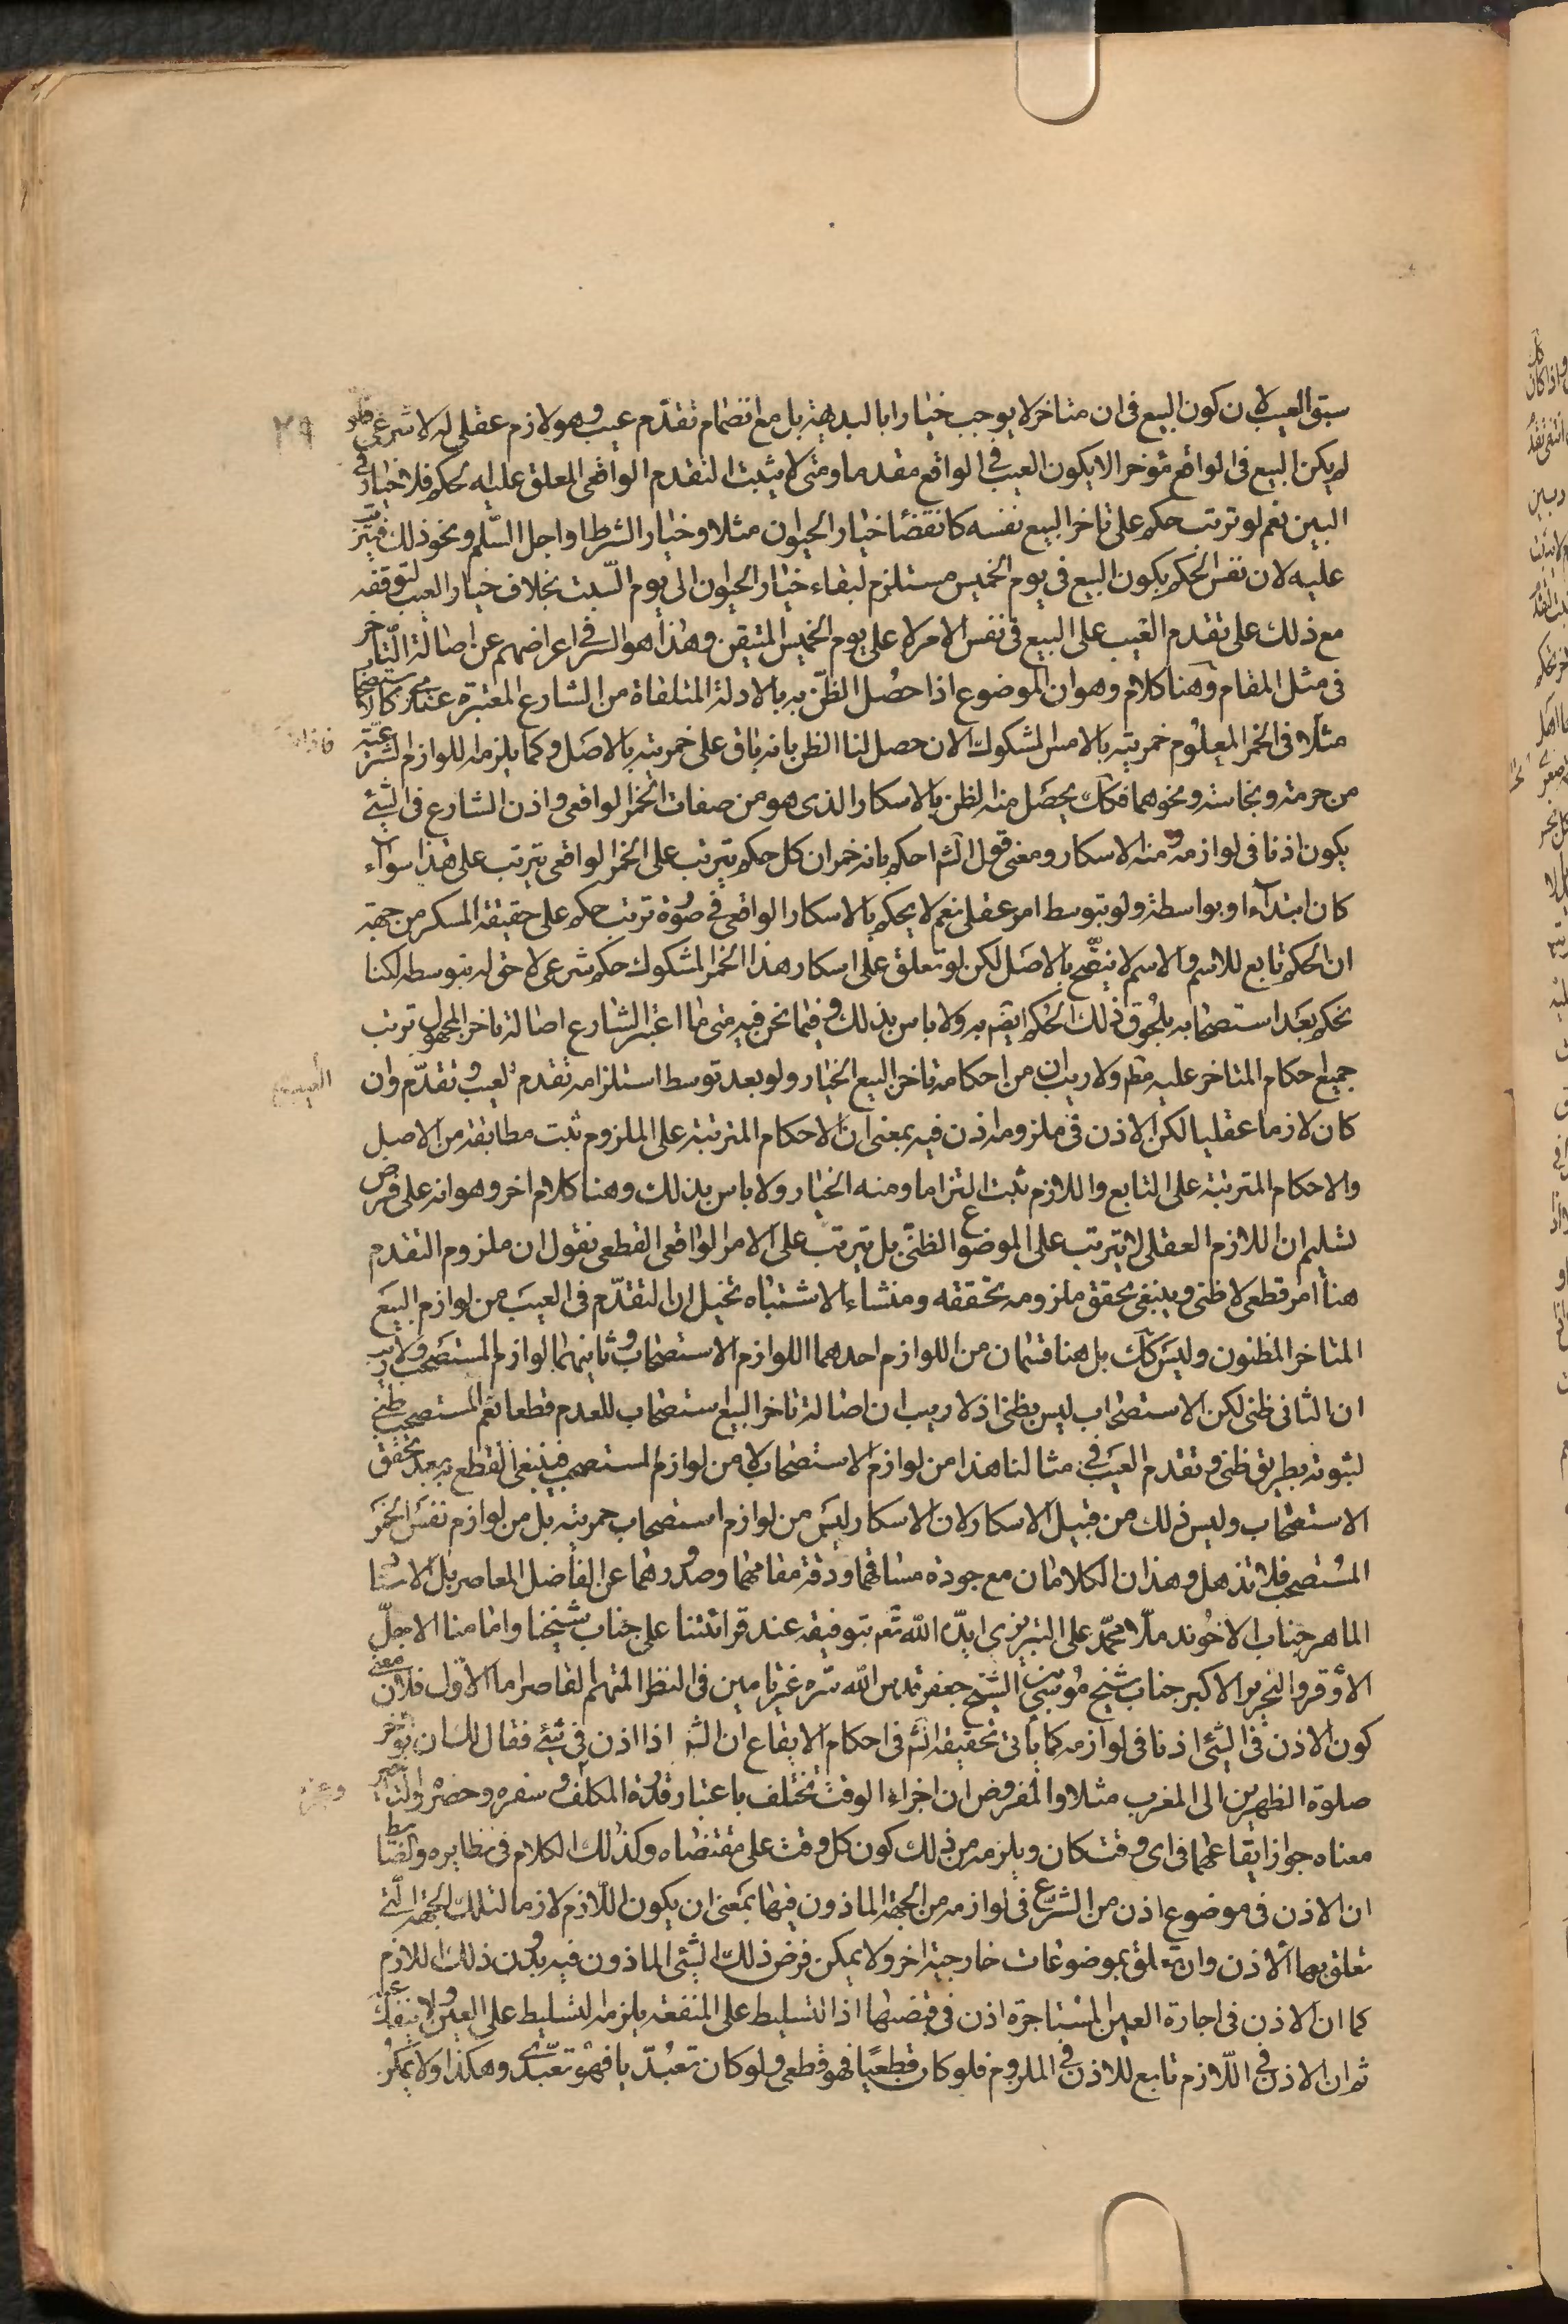 ٢٩
سبق العيب لان كون البيع فى ان متاخر لا يوجب خيارا بالبديهة بل مع انضمام تقدّم عيب وهو لازم عقلى له لا شرعى فلو
لم يكن البيع فى الواقع مؤخرا لا يكون العيب فى الواقع مقدما ومتى لا يثبت التقدم الواقعى المعلق عليه الحكم فلا خيار فى
البين نعم لو ترتب حكم على تاخر البيع نفسه كانقضا خيار الحيوان مثلا وخيار الشرط او اجل السّلم ونحو ذلك فيترتب
عليه لان نفس الحكم بكون البيع فى يوم الخميس مستلزم لبقاء خيار الحيوان الى يوم السّبت بخلاف خيار العيب لتوقفه
مع ذلك على تقدم العيب على البيع فى نفس الامر لا على يوم الخميس المتيقن وهذا هو السر فى اعراضهم عن اصالة التّاخر
فى مثل المقام وهنا كلام وهو ان الموضوع اذا حصُل الظنّ به بالادلة المتلقاة من الشارع المعتبرة عنده كالاستصحاب
مثلا فى الخمر المعلوم خمريته بالامس المشكوك الان حصل لنا الظن بانه باق على خمريته بالاصل وكما يلزمه اللوازم الشرعيّة
من حرمته ونجاسته ونحوهما فكك يحصَل منه الظن بالاسكار الذى هو من صفات الخمر الواقعى واذن الشارع فى الشئ
يكون اذنا فى لوازمه ومنه الاسكار ومعنى قول الشم احكم بانه خمر ان كل حكم يترتب على الخمر الواقعى يترتب على هذا سواء
كان ابتداء او بواسطة ولو بتوسط امر عقلى نعم لا يحكم بالاسكار الواقعى فى صورة ترتب حكم على حقيقة المسكر من جهة
ان الحكم تابع للاسم والاسم لا يتضح بالاصَل لكن لو تعلق على اسكار هذا الخمر المشكوك حكم شرعى لاحق له بتوسطه لكنا
نحكم بعَد استصحابه بلحُوق ذلك الحكم ايضَ به ولا باس بذلك وفيما نحن فيه متى ما اعتبر الشارع اصالة تاخر المجهول ترتب
جميع احكام المتاخر عليه مظ ولا ريب ان من احكامه تاخر البيع الخيار ولو بعد توسط استلزامه تقدم العيب وتقدّم وان
كان لازما عقليا لكن الاذن فى ملزومه اذن فيه بمعنى ان الاحكام المترتبة على الملزوم ثبت مطابقة من الاصل
والاحكام المترتبة على التابع واللازم ثبت التزاما ومنه الخيار ولا باس بذلك وهنا كلام اخر وهو انه على فرض
تسليم ان اللازم العقلى لا يترتب على الموضوع الظنّى بل يترتب على الامر الواقعى القطعى نقول ان ملزوم التقدم
هنا امر قطعى لا ظنى وينبغى بحقق ملزومه تحققه ومنشاء الاشتباه تخيل ان التقدّم فى العيب من لوازم البيَع
المتاخر المظنون وليسَ كك بل هنا قسمان من اللوازم احدهما اللوازم الاستصحاب وثانيهما لوازم المستصحب ولا ريب
ان الثانى ظنى لكن الاستصحاب ليس بظنى اذ لا ريب ان اصالة تاخر البيع استصحاب للعدم قطعا نعم المستصحب ظنى
لثبوته بطريق ظنى وتقدم العيب فى مثالنا هذا من لوازم الاستصحاب لا من لوازم المستصحب فينبغى القطع به بعد تحقق
الاستصحاب وليس ذلك من قبيل الاسكار لان الاسكار ليسَ من لوازم استصحاب خمريته بل من لوازم نفسَ الخمَر
المسُتصحب فلا تذهل وهذان الكلامان مع جودة مساقهما ودقة مقامهما وصدُورهما عن الفاضل المعاصر بل الاستا
الماهر جناب الاخوند ملّا محمّد على التبريزى ايدّه الله تعَ بتوفيقه عند قرائتنا على جناب شيخنا وامامنا الاجلّ
الاوقر والنحرير الاكبر جناب شيخ موسى بن الشيخ جعفر قدس الله سّره غير تامين فى النظر المتهم القاصر اما الاول فلان معنى
كون الاذن فى الشئ اذنا فى لوازمه كما ياتى تحقيقه انشَ فى احكام الايقاع ان الشم اذا اذن فى شئ فقال لك ان تؤخر
صلوة الظهرين الى المغرب مثلا والمفروض ان اجزاء الوقت تختلف باعتبار قدرة المكلف وسفره وحضره والتاخير
معناه جواز ايقاعهما فى اى وقت كان ويلزمه من ذلك كون كل وقت على مقتضاه وكذلك الكلام فى نظايره والضابط
ان الاذن فى موضوع اذن من الشرّع فى لوازمه من الجهة الماذون فيها بمَعنى ان يكون اللّازم لازما لتلك الجهة التى
تعلق بها الاذن وان تعلق بموضوعات خارجية اخر ولا يمكن فرض ذلك الشئى الماذون فيه بدُون ذلك اللازم
كما ان الاذن فى اجارة العين المستاجرة اذن فى قبضها اذ التسليط على المنفعة يلزمه التسليط على العين ولا ينفك عنه
ثم ان الاذن فى اللّازم تابع للاذن فى الملزوم فلو كان قطعيًا فهو قطعى ولو كان تعبُدّيا فهو تعبّدى وهكذا ولا يمكن